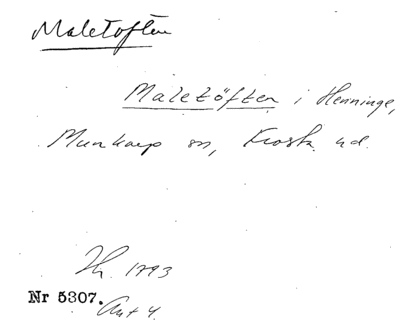 Maletoften
Maletöften i Henninge,
Munkarp sn, Frosta hd.
Th. 1793
Nr 5307.
Ant 4.